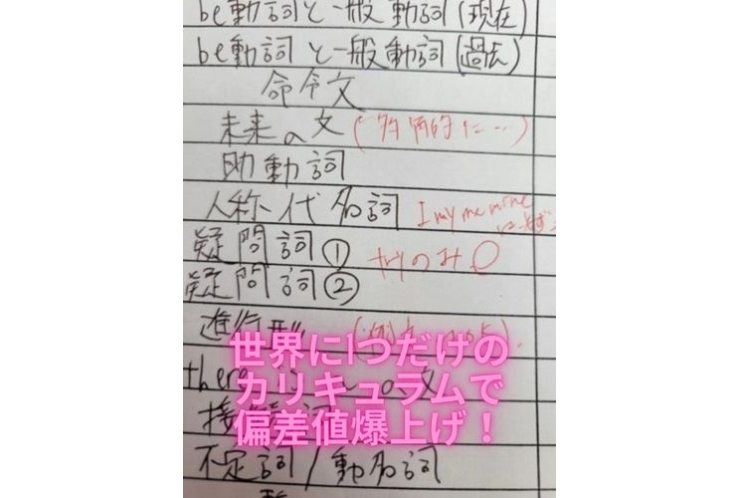 be動詞と一般動詞(現在)
be動詞と一般動詞(過去)
命令文
未来の文
助動詞
人称代名詞 I my me mine
疑問詞①
疑問詞② のみ
進行形
there
世界に1つだけの
カリキュラムで
偏差値爆上げ！
不定詞/動名詞